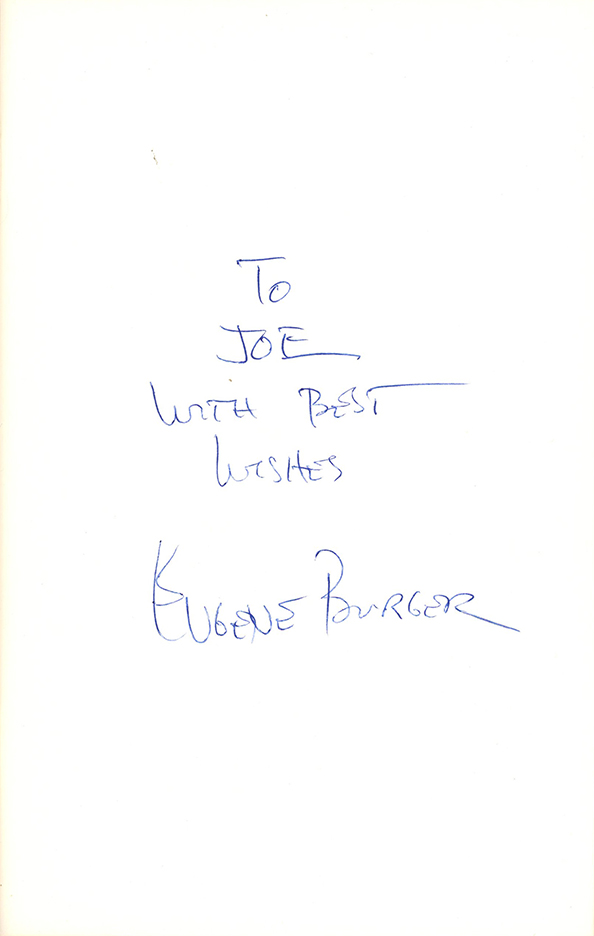 To
JOE
WITH BEST
WISHES
EUGENE BURGER